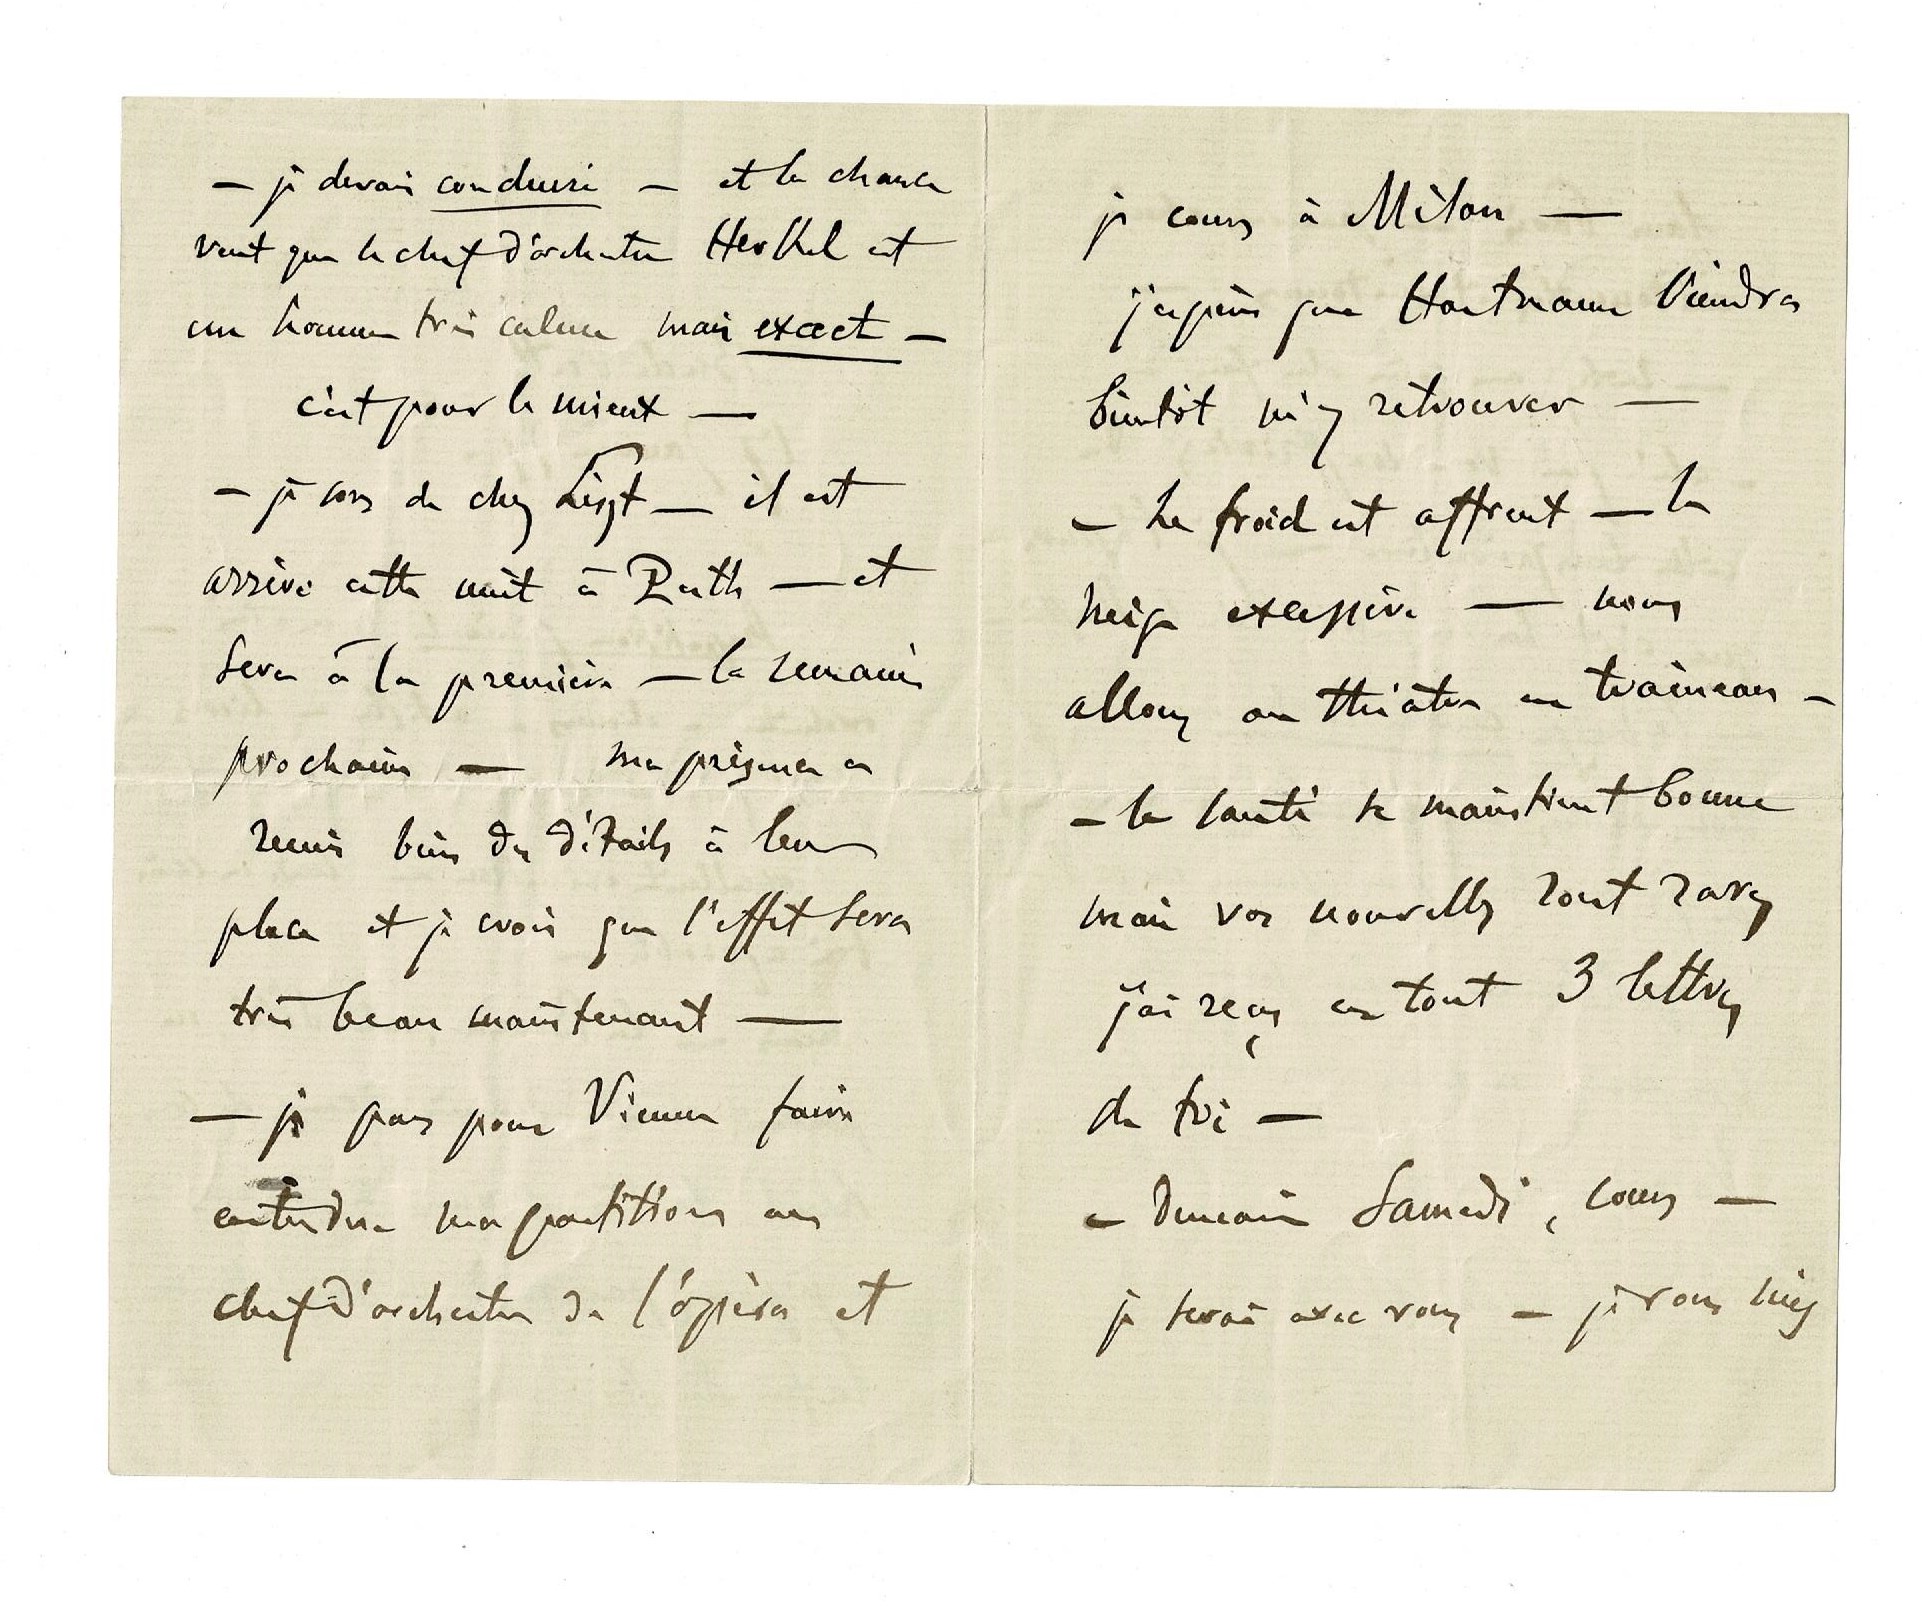 — je devais conduire — et la chance
veut que le chef d'orchestre Herkel est
un homme très calme mais exact —
c'est pour le mieux —
— je sors de chez Liszt — il est
arrivé cette nuit à Pesth — et
sera à la première — la semaine
prochaine — ma présence a
remis bien des détails à leur
place et je crois que l'effet sera
très beau maintenant —
— je pars pour Vienne faire
entendre ma partition au
chef d'orchestre de l'opéra et
je cours à Milan —
j'espère que Hartmann viendra
bientôt m'y retrouver —
— Le froid est affreux — la
neige excessive — nous
allons au théâtre en traîneau —
— la santé se maintient bonne
mais vos nouvelles sont rares
j'ai reçu en tout 3 lettres
de toi —
— Demain Samedi, cours —
je serai avec vous — je vous